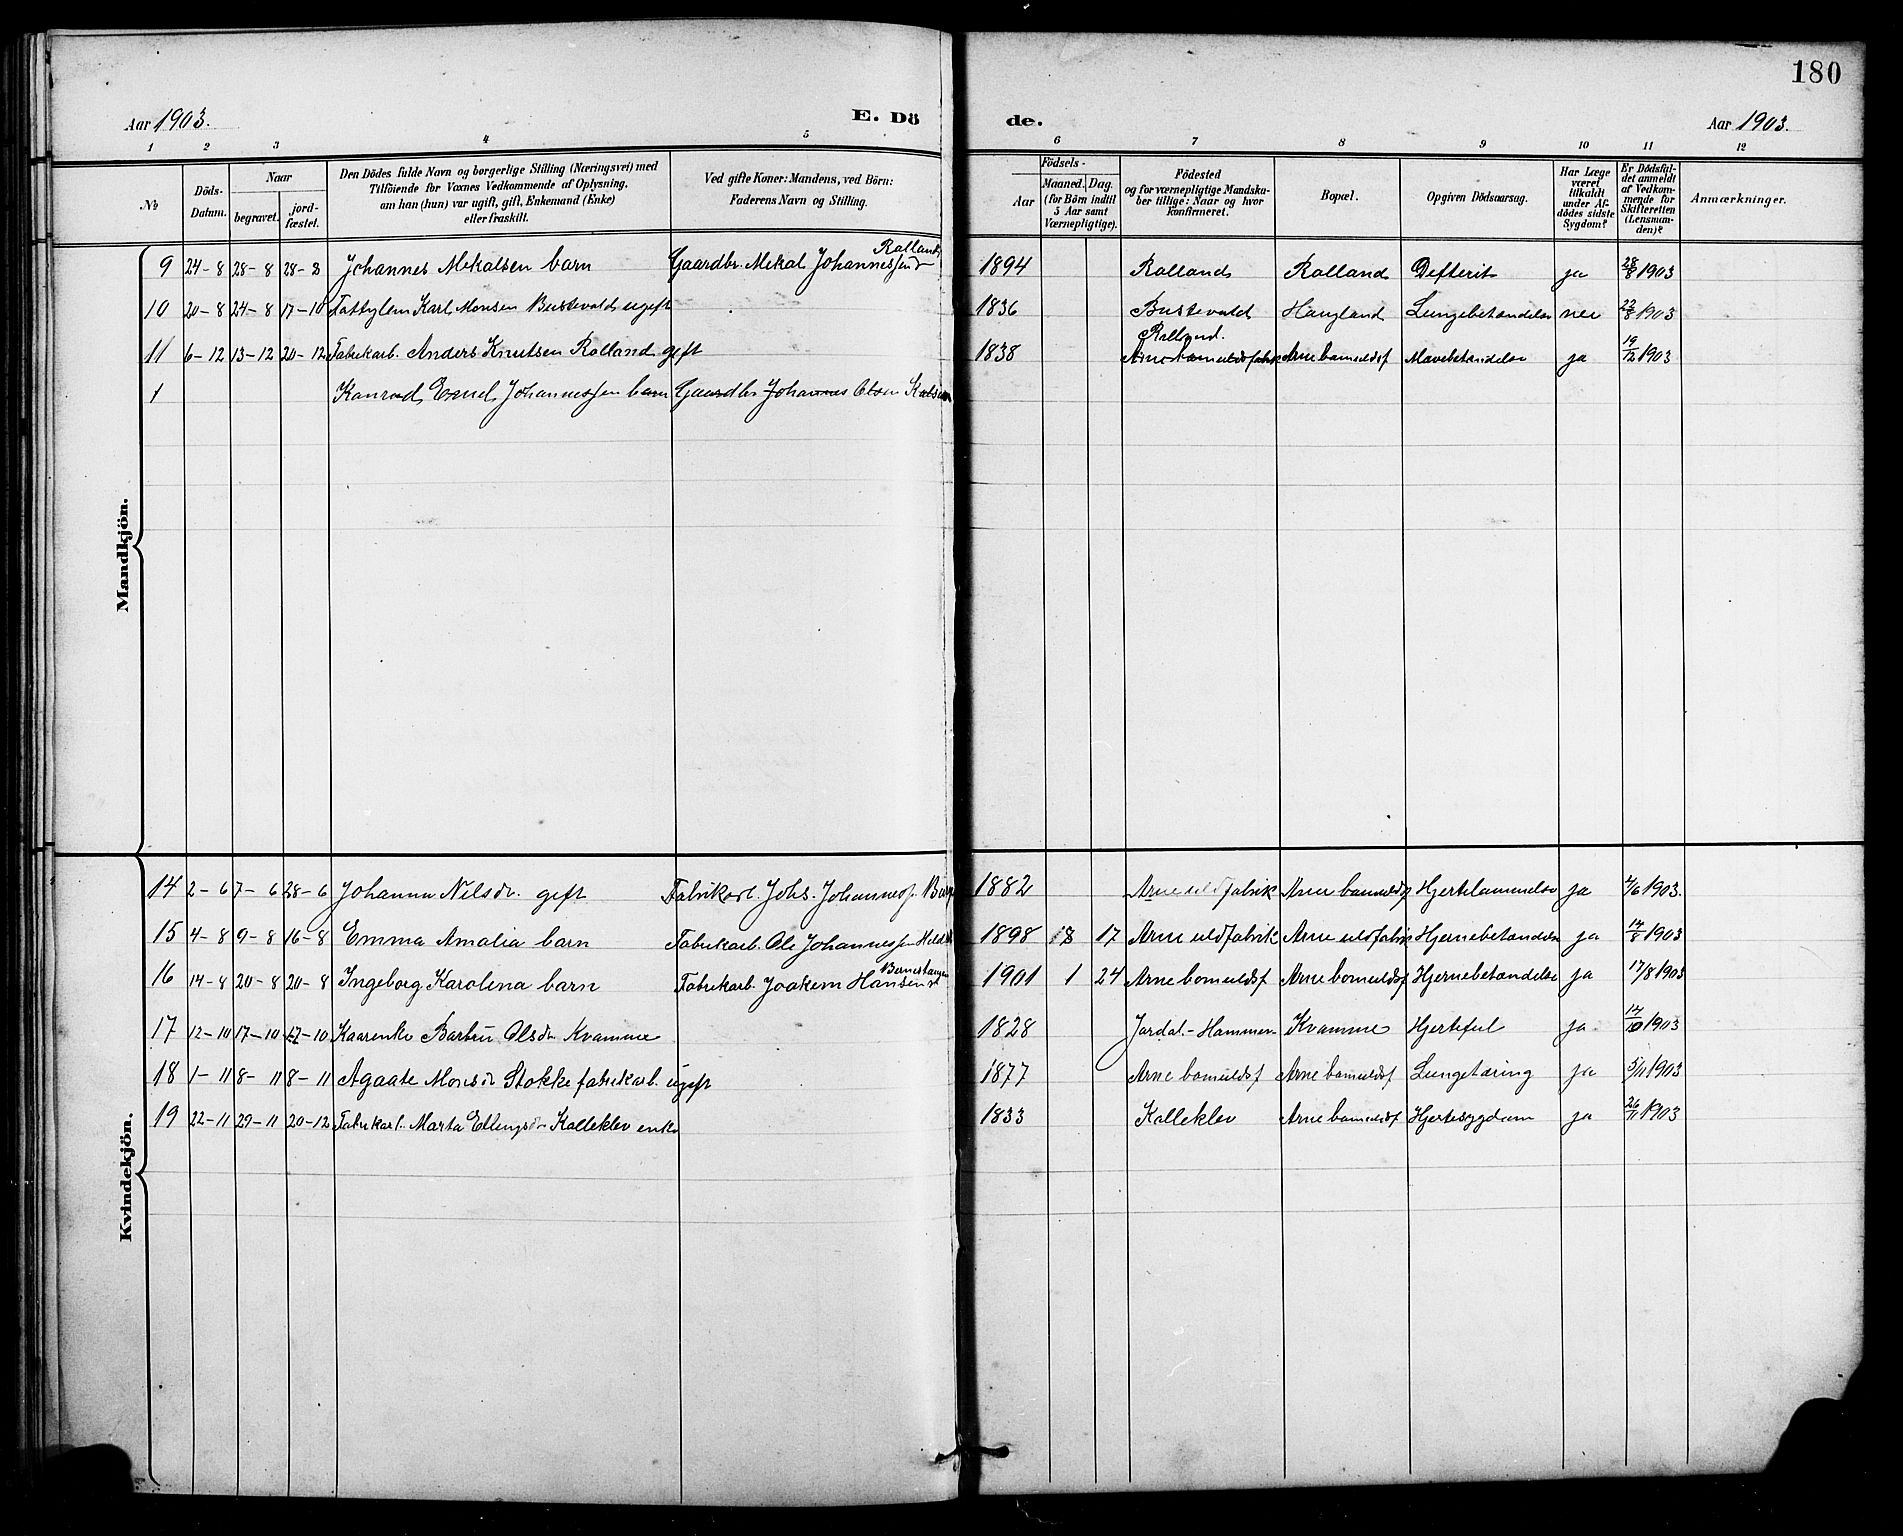 180
Aar 1903. E. Dö de. Aar 1903.
1 2 3 4 5 6 7 8 9 10 11 12
No
Döds-Datum.
Naar
begravet.
jord-fæstet.
Den Dödes fulde Navn og borgerlige Stilling (Næringsvei) med
Tilföiende for Voxnes Vedkommende af Oplysning,
om han (hun) var ugift, gift, Enkemand (Enke)
eller fraskilt.
Ved gifte Koner: Mandens, ved Börn:
Faderens Navn og Stilling.
Födsels-
Aar
Maaned. Dag.
(for Börn indtil
5 Aar samt
Værnepligtige).
Födested
og for værnepligtige Mandska-
ber tillige: Naar og hvor
konfirmeret.
Bopæl.
Opgiven Dödsaarsag.
Har Læge
været
tilkaldt
under Af-
dödes sidste
Sygdom?
Er Dödsfal-
det anmeldt
af Vedkom-
mende for
Skifteretten
(Lensman-
den)?
Anmærkninger.
Mandkjön.
9 24-8 28-8 28-8 Johannes Mikalsen barn Gaardbr. Mekal Johannessen Rolland 1894 Rolland Rolland Defterit ja 28/8 1903
10 20-8 24-8 17-10 Fattylem Karl Monsen Bustevold ugift 1836 Bustevold Haugland Lungebetændelse nei 22/8 1903
11 6-12 13-12 20-12 Fabrikarb. Anders Knutsen Rolland gift 1838 Rolland. Arne bomuldsfabrik Arne bomuldsf Mavebetændelse ja 19/12 1903
1 Konrad Johannessen barn Gaardbr Johannes Olsen
Kvindekjön.
14 2-6 7-6 28-6 Johanna Nilsdr. gift Fabrikarb. Johs. Johannes 1882 Arne uldfabrik Arne bomuldsf Hjertelammelse ja 4/6 1903.
15 4-8 9-8 16-8 Emma Amalia barn Fabrikarb. Ole Johannessen 1898 8 17 Arne uldfabrik Arne uldfabrik Hjernebetændelse ja 14/8 1903
16 14-8 20-8 20-8 Ingeborg Karolina barn Fabrikarb. Joakim Hansen 1901 1 24 Arne bomuldsf Arne bomuldsf Hjernebetændelse ja 17/8 1903
17 12-10 17-10 17-10 Kaarenke Barbru Olsdr Kvamme 1828 Jordal-Hammer Kvamme Hjertefeil ja 14/10 1903
18 1-11 8-11 8-11 Agaate Monsdr Stokke fabrikarb. ugift 1877 Arne bomuldsf Arne bomuldsf Lungetæring ja 5/11 1903
19 22-11 29-11 20-12 Fabrikarb. Marta Ellingsdr Kalleklev enke 1833 Kalleklev Arne bomuldsf Hjertesygdom ja 26/11 1903